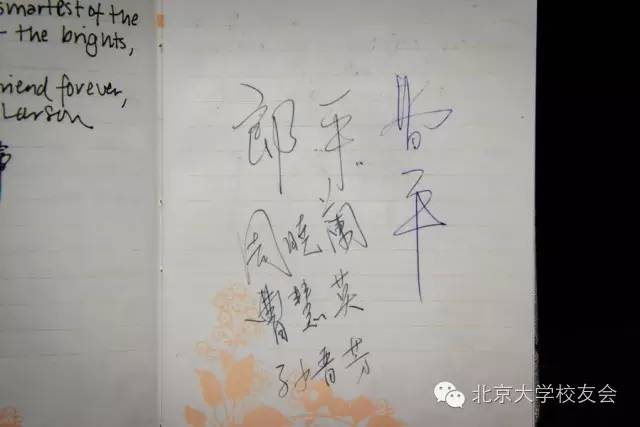 smartest of the
the brights,
forever,
Larson
郎平
平
周曉蘭
曹慧英
孙晋芳
北京大学校友会